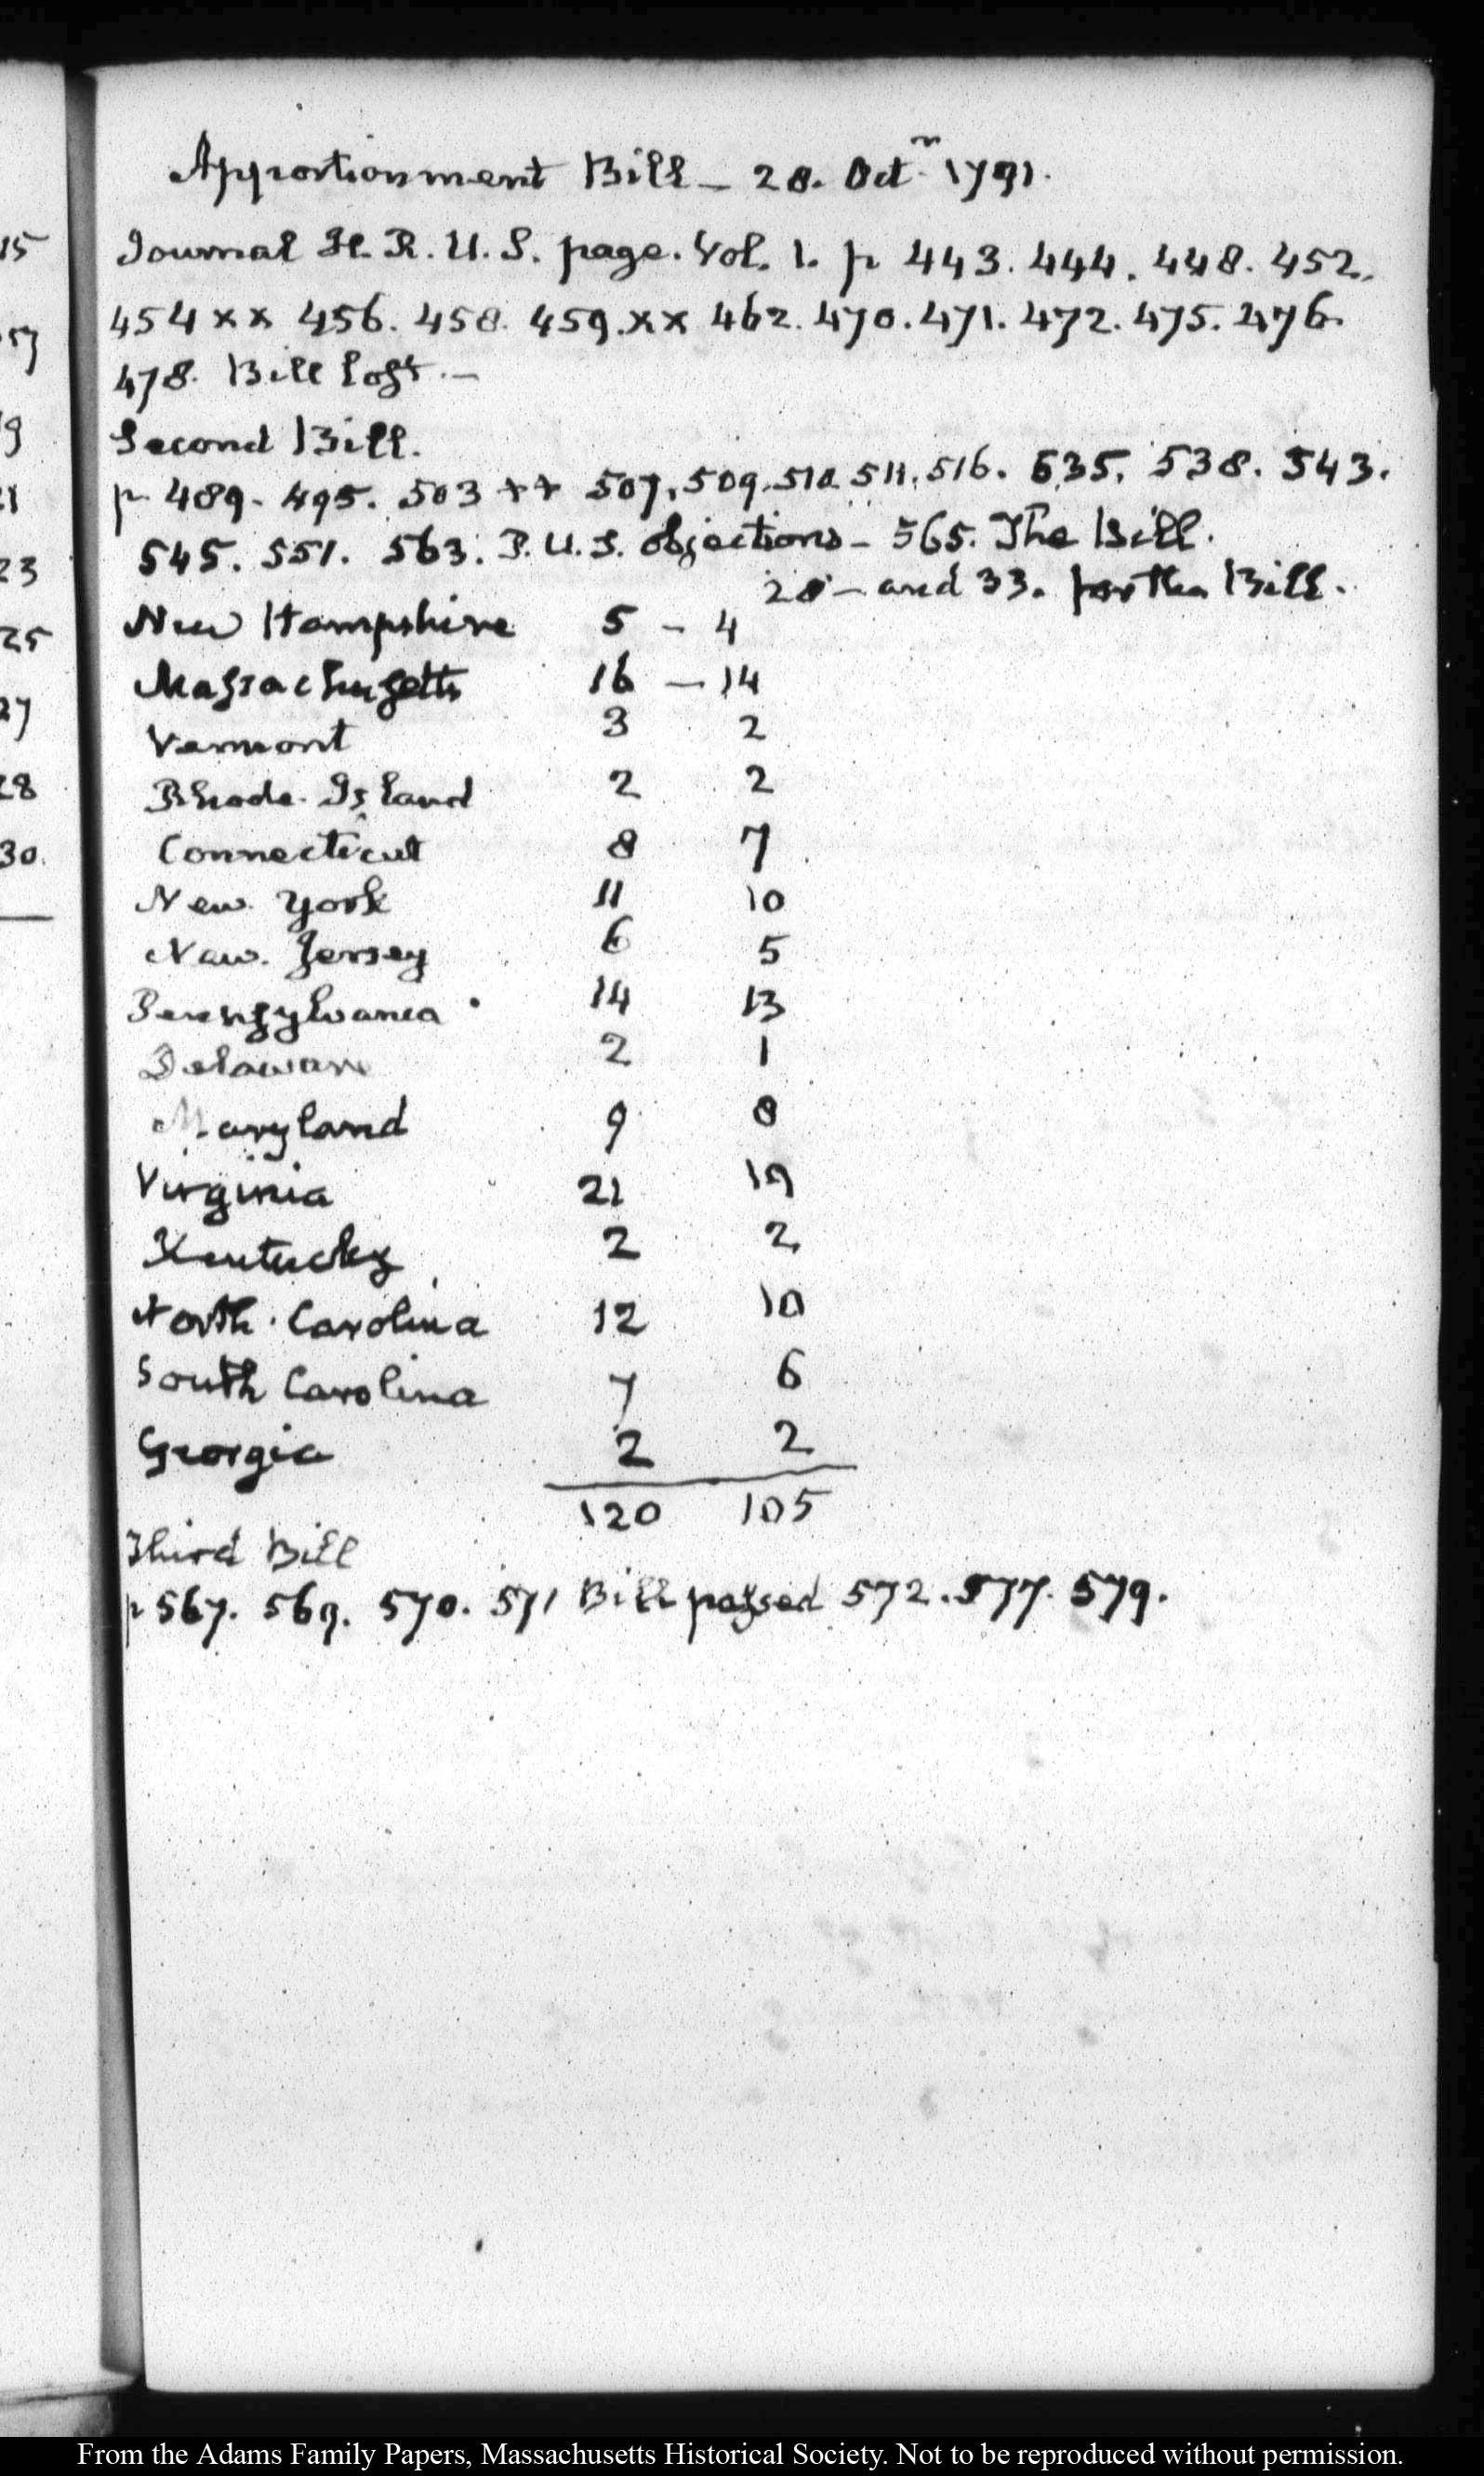 15
57
9
21
23
25
27
28
30.
Apportionment Bill - 28. Octr 1791.
Journal H. R. U. S. page. Vol. 1. p 443. 444. 448. 452.
454 xx 456. 458. 459. xx 462. 470. 471. 472. 475. 476.
478. Bill lost.-
Second Bill.
p 489. 495. 503 ++ 507. 509. 510. 511. 516. 535. 538. 543.
545. 551. 563. P. U. S. objections - 565. The Bill.
28 - and 33. for the Bill.
New Hampshire 5 - 4
Massachusetts 16 - 14
Vermont 3 2
Rhode Island 2 2
Connecticut 8 7
New York 11 10
New Jersey 6 5
Pennsylvania 14 13
Delaware 2 1
Maryland 9 8
Virginia 21 19
Kentucky 2 2
North Carolina 12 10
South Carolina 7 6
Georgia 2 2
120 105
Third Bill
p 567. 569. 570. 571 Bill passed 572. 577. 579.
From the Adams Family Papers, Massachusetts Historical Society. Not to be reproduced without permission.